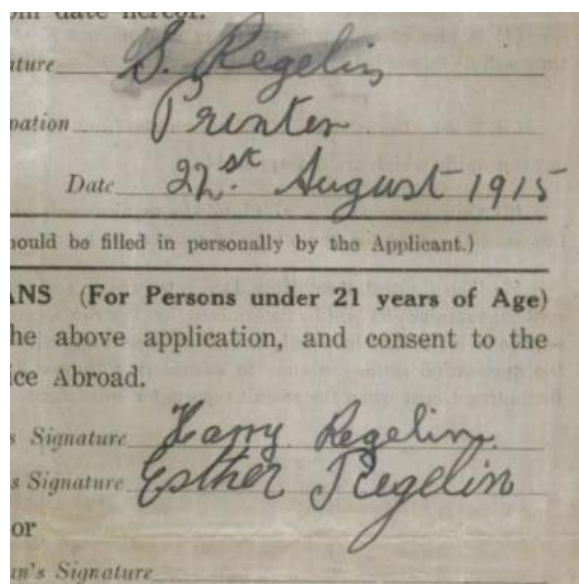 om date hereof.
ature S. Regelin
pation Printer
Date 22.st August 1915
ould be filled in personally by the Applicant.)
ANS (For Persons under 21 years of Age)
he above application, and consent to the
ice Abroad.
s Signature Harry Regelin.
s Signature Esther Regelin
or
an's Signature